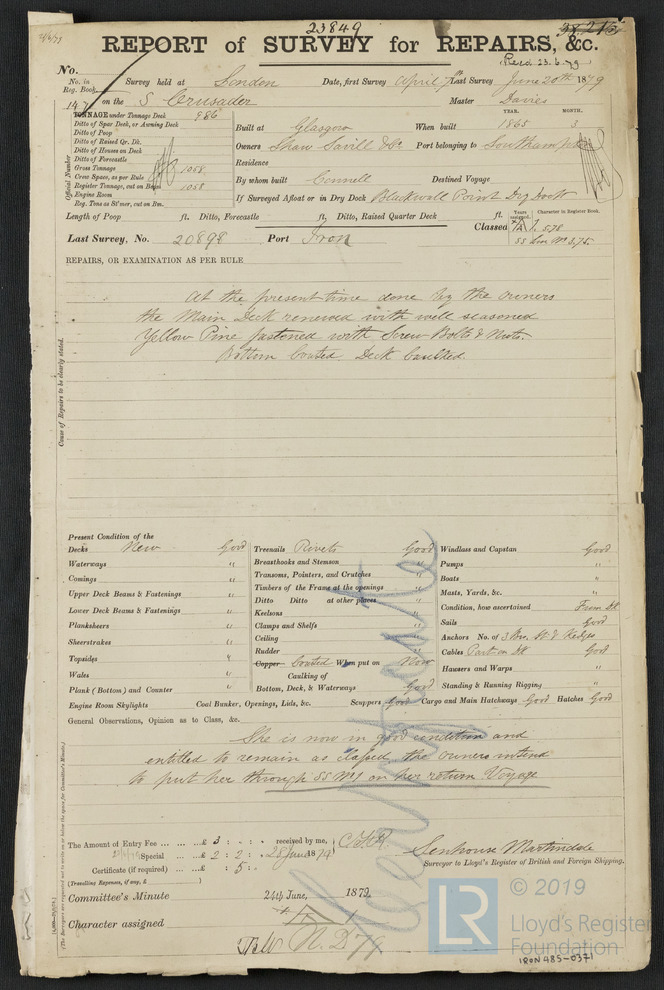 23849
REPORT of SURVEY for REPAIRS, &c.
Recd 23.6.79
No.
No. in Reg. Book
Survey held at London Date, first Survey April 7th Last Survey June 20th 1879
147 on the S Crusader Master Davies
TONNAGE under Tonnage Deck 986
Ditto of Spar Deck, or Awning Deck
Ditto of Poop
Ditto of Raised Qr. Dk.
Ditto of Houses on Deck
Ditto of Forecastle
Gross Tonnage 1058
Crew Space, as per Rule
Register Tonnage, cut on Beam 1058
Engine Room
Reg. Tons as St'mer, cut on Bm.
Official Number
YEAR. MONTH.
Built at Glasgow When built 1865 3
Owners Shaw Savill & Co Port belonging to Southampton
Residence
By whom built Connell Destined Voyage
If Surveyed Afloat or in Dry Dock Blackwall Point Dry Dock
Length of Poop ft. Ditto, Forecastle ft. Ditto, Raised Quarter Deck ft.
Years assigned. Character in Register Book.
Classed A 1. 5.78
SS Lon No 3.75
Last Survey, No. 20898 Port Iron
REPAIRS, OR EXAMINATION AS PER RULE
At the present time done by the owners
the Main Deck renewed with well seasoned
Yellow Pine fastened with Screw Bolts & Nuts.
Bottom Coated. Deck Caulked.
Cause of Repairs to be clearly stated.
Present Condition of the
Decks New Good
Waterways "
Comings "
Upper Deck Beams & Fastenings "
Lower Deck Beams & Fastenings "
Planksheers "
Sheerstrakes "
Topsides "
Wales "
Plank (Bottom) and Counter "
Treenails Rivets Good
Breasthooks and Stemson "
Transoms, Pointers, and Crutches "
Timbers of the Frame at the openings "
Ditto Ditto at other places "
Keelsons "
Clamps and Shelfs "
Ceiling "
Rudder "
Copper Coated When put on Now
Caulking of
Bottom, Deck, & Waterways Good
Windlass and Capstan Good
Pumps "
Boats "
Masts, Yards, &c. "
Condition, how ascertained From Dk
Sails Good
Anchors No. of 3 Brs. St & Kedges
Cables Part on Dk Good
Hausers and Warps "
Standing & Running Rigging "
Engine Room Skylights Coal Bunker, Openings, Lids, &c. Scuppers Good Cargo and Main Hatchways Good Hatches Good
General Observations, Opinion as to Class, &c.
She is now in good condition and
entitled to remain as classed, the owners intend
to put her through SS No 1 on her return Voyage
The Amount of Entry Fee £ 3 : : received by me,
Special £ 2 : 2 : 28 June 1879
Certificate (if required) £ : 5 :
(Travelling Expenses, if any, £ )
Senhouse Martindale
Surveyor to Lloyd's Register of British and Foreign Shipping.
Committee's Minute 24th June, 1879.
Character assigned
N.D 79
(The Surveyors are requested not to write on or below the space for Committee's Minute.)
LR
© 2019
Lloyd's Register
Foundation
IRON 485-0371